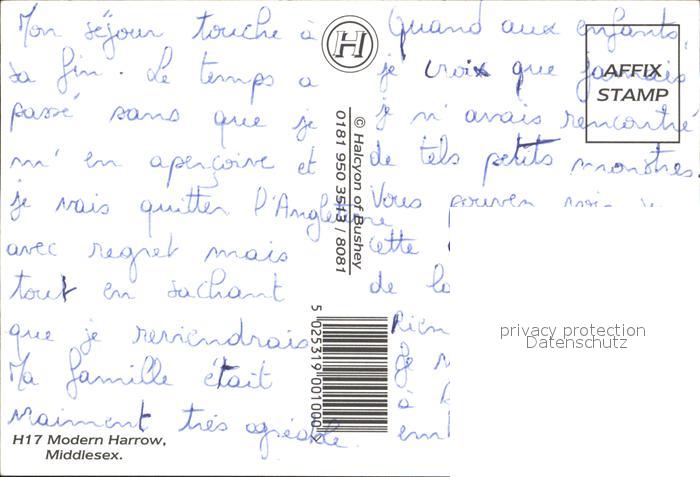 Mon séjour touche à
sa fin. Le temps a
passé sans que je
m'en aperçoive et
je vais quitter l'Angleterre
avec regret mais
tout en sachant
que je reviendrais
Ma famille était
vraiment très agréable.
Quand aux enfants,
je crois que jamais
je n'avais rencontré
de tels petits monstres.
Vous pouvez
cette
de
Rien
Je
à
AFFIX
STAMP
H
© Halcyon of Bushey
0181 950 3513 / 8081
5 025319 001000
H17 Modern Harrow,
Middlesex.
privacy protection
Datenschutz